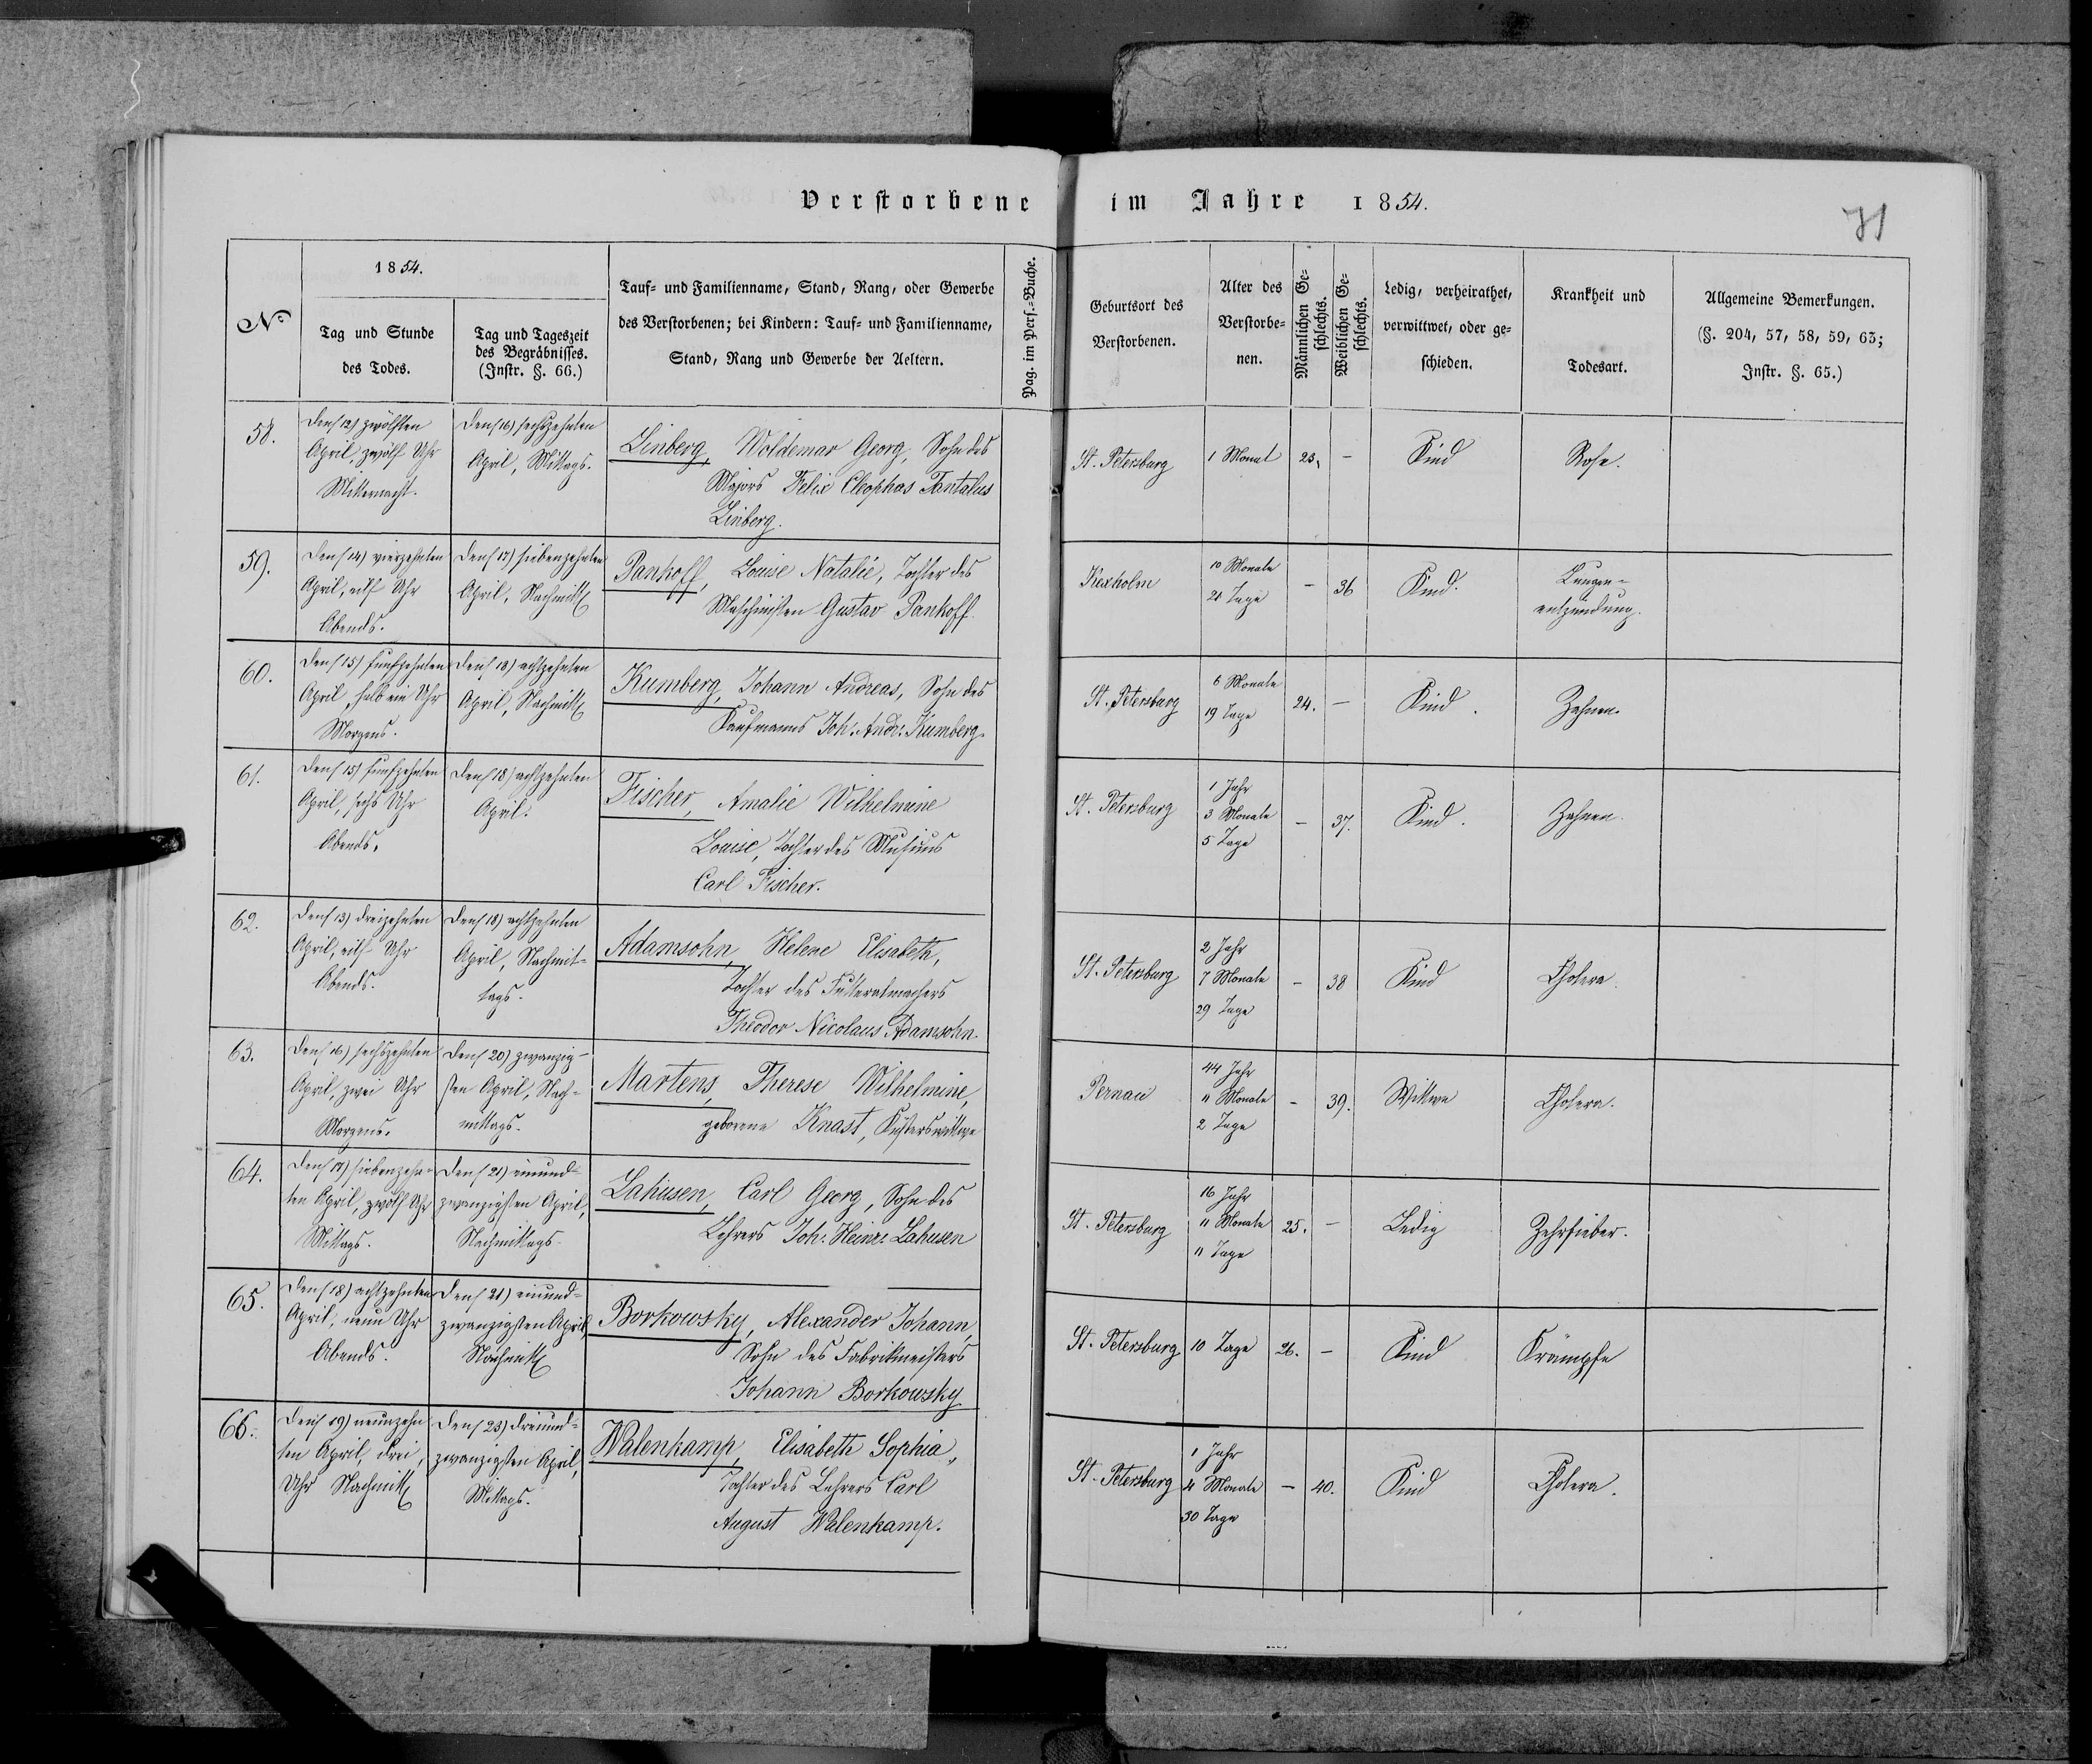 Verstorbene im Jahre 1854.
71
№
1854.
Tag und Stunde
des Todes.
Tag und Tageszeit
des Begräbnisses.
(Instr. §. 66.)
Tauf= und Familienname, Stand, Rang, oder Gewerbe
des Verstorbenen; bei Kindern: Tauf= und Familienname,
Stand, Rang und Gewerbe der Aeltern.
Pag. im Pers.=Buche.
Geburtsort des
Verstorbenen.
Alter des
Verstorbe=
nen.
Männlichen Ge=
schlechts.
Weiblichen Ge=
schlechts.
Ledig, verheirathet,
verwittwet, oder ge=
schieden.
Krankheit und
Todesart.
Allgemeine Bemerkungen.
(§. 204, 57, 58, 59, 63;
Instr. §. 65.)
58.
Den (12) zwölften
April, zwölf Uhr
Mitternacht.
Den (16) sechszehnten
April, Mittags.
Linberg, Woldemar Georg, Sohn des
Majors Felix Cleophas Tantalus
Linberg.
St. Petersburg
1 Monat
23,
–
Kind
Rose.
59.
Den (14) vierzehnten
April, eilf Uhr
Abends.
Den (17) siebenzehnten
April, Nachmitt
Pankoff, Louise Natalie, Tochter des
Maschinisten Gustav Pankoff.
Kexholm
10 Monate
21 Tage
–
36
Kind.
Lungen=
entzündung.
60.
Den (15) funfzehnten
April, halb ein Uhr
Morgens.
Den (18) achtzehnten
April, Nachmitt
Kumberg, Johann Andreas, Sohn des
Kaufmanns Joh: Andr: Kumberg.
St. Petersburg
6 Monate
19 Tage
24.
–
Kind.
Zahnen.
61.
Den (15) funfzehnten
April, sechs Uhr
Abends.
Den (18) achtzehnten
April.
Fischer, Amalie Wilhelmine
Louise, Tochter des Musicus
Carl Fischer.
St. Petersburg
1 Jahr
3 Monate
5 Tage
–
37.
Kind.
Zahnen.
62.
Den (13) dreizehnten
April, eilf Uhr
Abends.
Den (18) achtzehnten
April, Nachmit=
tags.
Adamsohn, Helene Elisabeth,
Tochter des Futteralmachers
Theodor Nicolaus Adamsohn.
St. Petersburg
2 Jahr
7 Monate
29 Tage
–
38
Kind
Cholera.
63.
Den (16) sechszehnten
April, zwei Uhr
Morgens.
Den (20) zwanzig=
sten April, Nach=
mittags.
Martens, Therese Wilhelmine,
geborene Knast, Küsterswittwe
Pernau
44 Jahr
11 Monate
2 Tage
–
39.
Wittwe
Cholera.
64.
Den (17) siebenzehn=
ten April, zwölf Uhr
Mittags.
Den (21) einund=
zwanzigsten April,
Nachmittags.
Lahusen, Carl Georg, Sohn des
Lehrers Joh: Heinr: Lahusen
St. Petersburg
16 Jahr
11 Monate
11 Tage
25.
–
Ledig
Zehrfieber.
65.
Den (18) achtzehnten
April, neun Uhr
Abends.
Den (21) einund=
zwanzigsten April,
Nachmitt
Borkowsky, Alexander Johann,
Sohn des Fabrikmeisters
Johann Borkowsky
St. Petersburg
10 Tage
26.
–
Kind
Krämpfe
66.
Den (19) neunzehn
ten April, drei
Uhr Nachmitt
Den (23) dreiund=
zwanzigsten April,
Mittags.
Walenkamp, Elisabeth Sophia,
Tochter des Lehrers Carl
August Walenkamp.
St. Petersburg
1 Jahr
4 Monate
30 Tage
–
40.
Kind
Cholera.